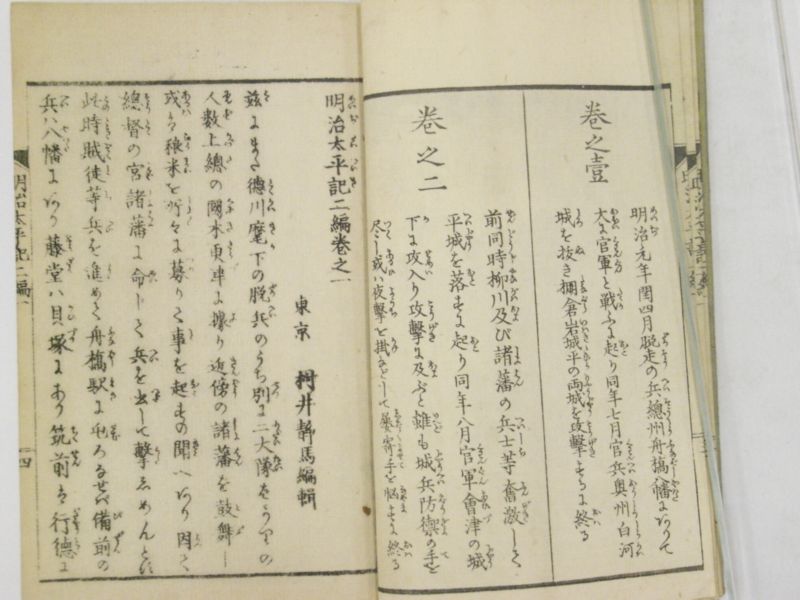 卷之壹
明治元年閏四月脱走の兵總州舟橋八幡に
大に官軍と戰ふに起り同年七月官兵奥州白河
城を抜き棚倉岩城平の両城を攻撃するに終る
卷之二
前同時柳川及び諸藩の兵士等奮激して
平城を落すに起り同年八月官軍會津の城
下に攻入り攻撃に及ぶと雖も城兵防禦の手を
尽し或ハ夜撃を掛るとして暴寄手を脳ますに終る
明治太平記二編卷之一
東京 柯井靜馬編輯
茲にまた德川麾下の脱兵のうち別に二大隊
人数上總の國木更津に據り近傍の諸藩を鼓舞し
或は糧米を所々に募りて事を起すの聞へあり因て
總督の宮諸藩に命じて兵を出して撃しめんとに
此時賊徒等兵を進めて舟橋駅に出る備前の
兵ハ八幡にあり藤堂ハ貝塚にあり筑前は行德に
明治太平記二編一
四